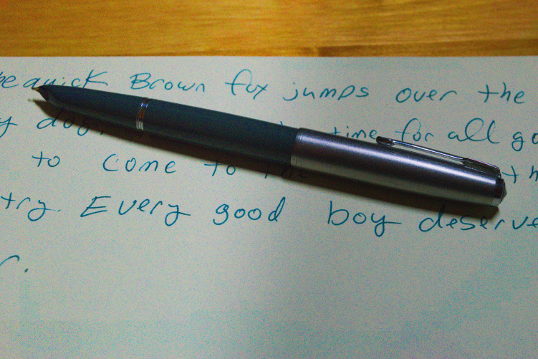 quick Brown fox jumps over the
y dog time for all go
to come to the th
try. Every good boy deserve
r.